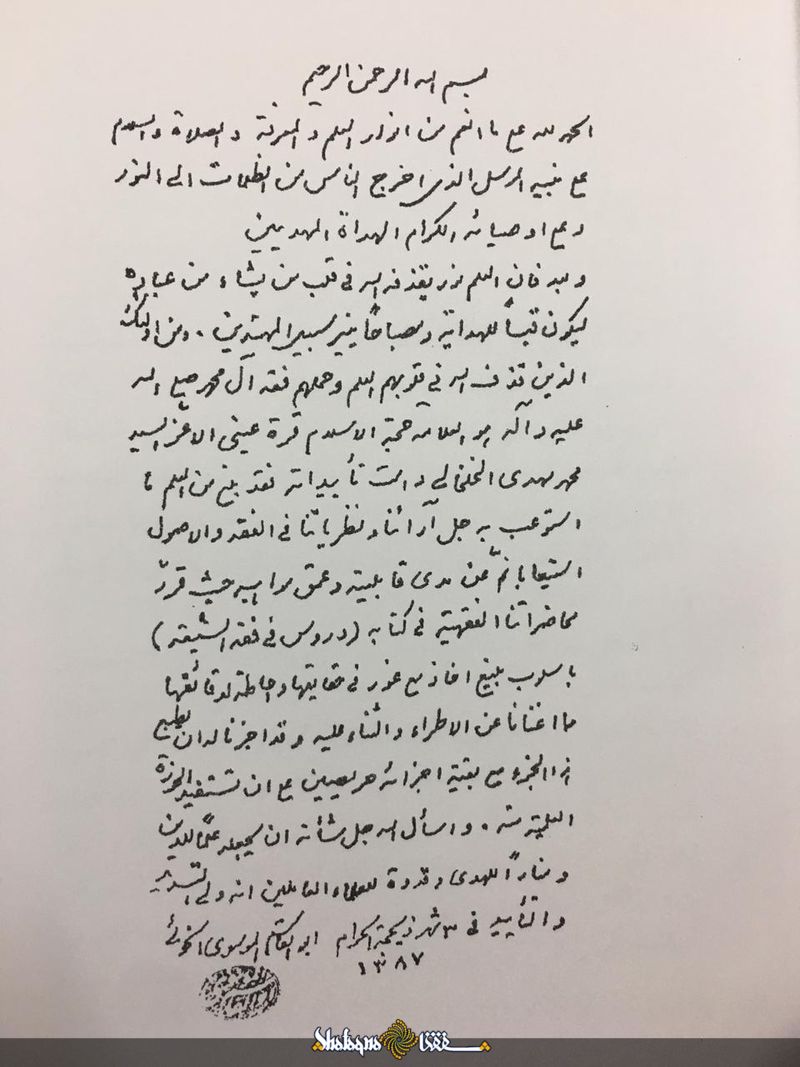 بسم الله الرحمن الرحيم
الحمد لله على ما انعم من انوار العلم والمعرفة والصلاة والسلام
على نبيه المرسل الذي اخرج الناس من الظلمات الى النور
وعلى اوصيائه الكرام الهداة المهديين
وبعد فان العلم نور يقذفه الله في قلب من يشاء من عباده
ليكون قبساً للهداية ومصباحاً ينير سبيل المهتدين . ومن اولئك
الذين قذف الله في قلوبهم العلم وحملهم فقه آل محمد صلى الله
عليه وآله هو العلامه حجة الاسلام قرة عيني الاعز السيد
محمد مهدى الخلخالي دامت تأييداته فقد بلغ من العلم ما
استوعب به جل آرائنا ونظرياتنا في الفقه والاصول
استيعابا نمّ عن مدى قابليته وعمق مواهبه حيث قرر
محاضراتنا الفقهية في كتابه (دروس في فقه الشيعه)
باسلوب بليغ اخاذ مع غور في حقايقها واحاطة لدقائقها
ما اغنانا عن الاطراء والثناء عليه وقد اجزنا له ان يطبع
هذا الجزء مع بقية اجزائه حريصين على ان تستفيد الحوزة
العلمية منه . واسأل الله جل شأنه ان يجعله علماً للدين
ومناراً للهدى وقدوة للعلماء العاملين انه ولي التسديد
والتأييد في ٣ شهر ذيحجة الحرام ابو القاسم الموسوى الخوئي
١٣٨٧
Shafaqna شفقنا